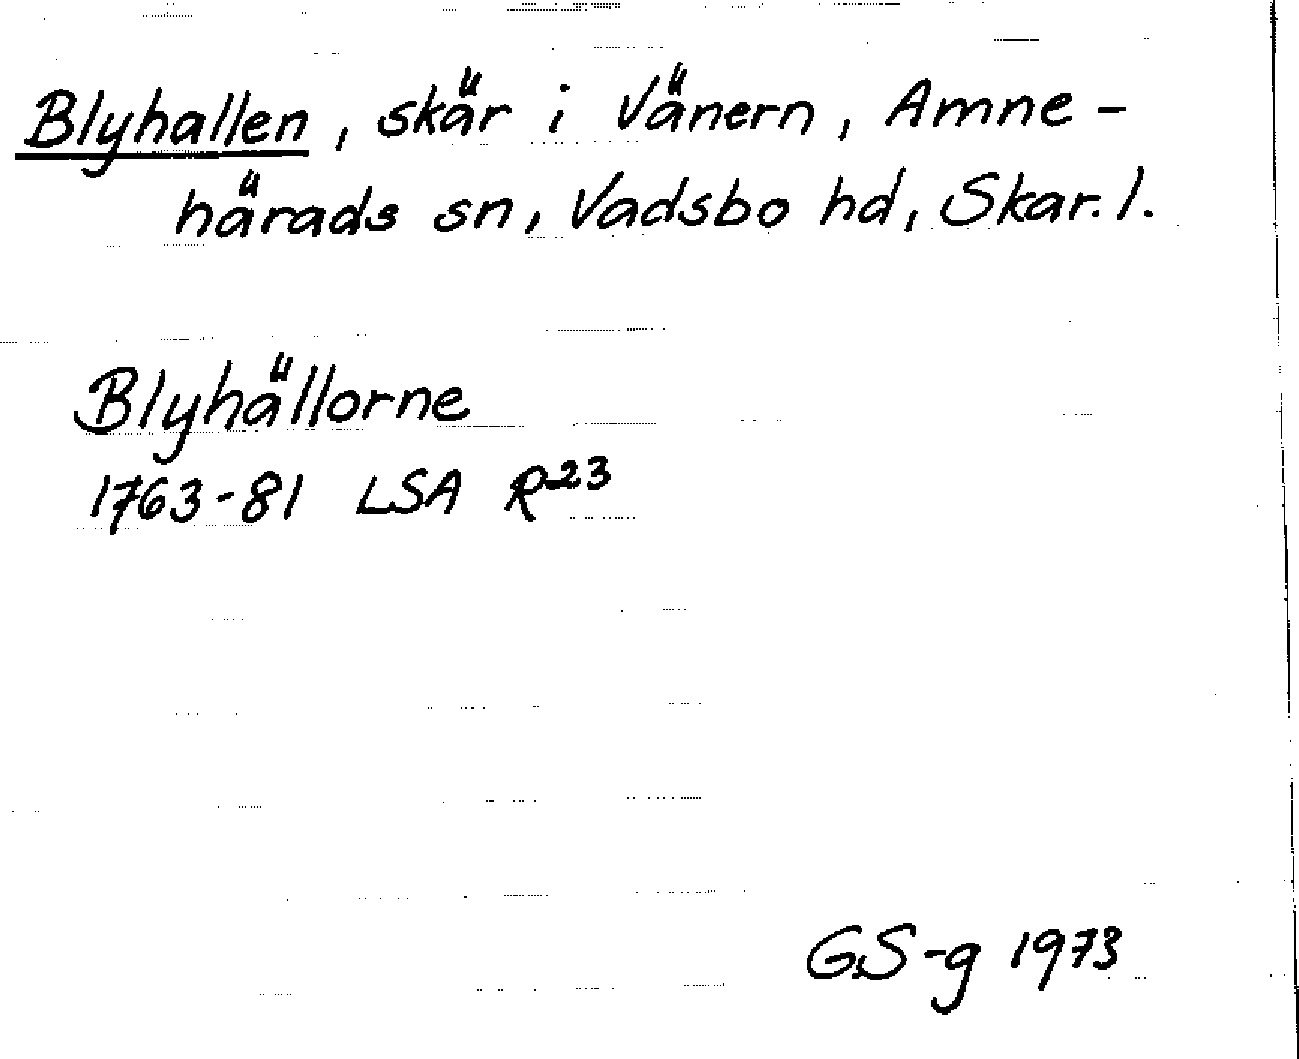 Blyhallen, skär i Vänern, Amne-
härads sn, Vadsbo hd, Skar. l.
Blyhällorne
1763-81 LSA R23
GS-g 1973